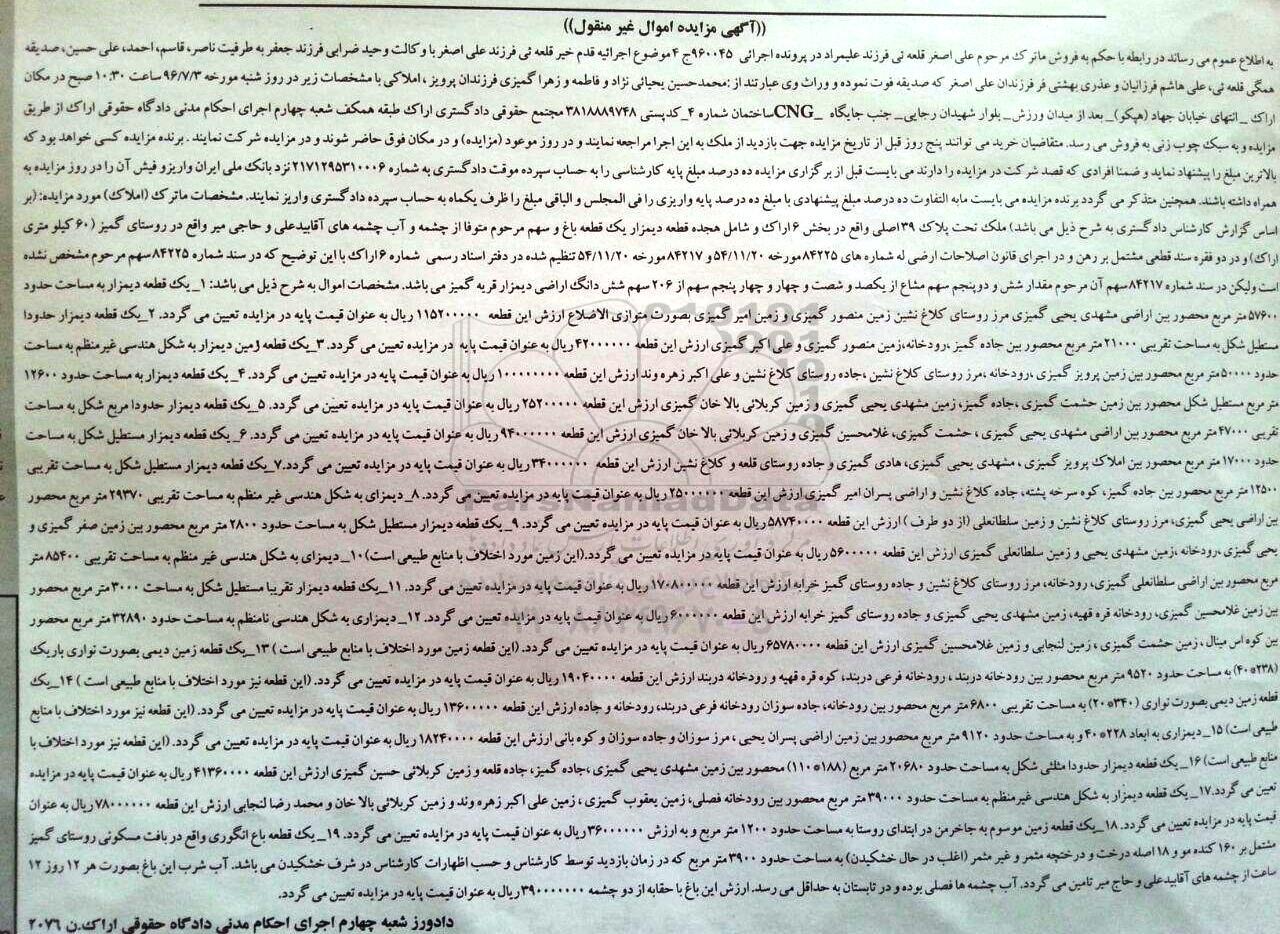 ((آگهی مزایده اموال غیر منقول))
به اطلاع عموم می رساند در رابطه با حکم به فروش ماترک مرحوم علی اصغر قلعه ئی فرزند علیمراد در پرونده اجرائی ۹۶۰۰۴۵ج ۴ موضوع اجرائیه قدم خیر قلعه ئی فرزند علی اصغر با وکالت وحید ضرابی فرزند جعفر به طرفیت ناصر، قاسم، احمد، علی حسین، صدیقه
همگی قلعه ئی، علی هاشم فرزانیان و عذری بهشتی فر فرزندان علی اصغر که صدیقه فوت نموده و وراث وی عبارتند از :محمدحسین یحیائی نژاد و فاطمه و زهرا گمیزی فرزندان پرویز ، املاکی با مشخصات زیر در روز شنبه مورخه ۹۶/۷/۳ ساعت ۱۰:۳۰ صبح در مکان
اراک _ انتهای خیابان جهاد (هپکو)_ بعد از میدان ورزش_ بلوار شهیدان رجایی_ جنب جایگاه _CNG ساختمان شماره ۴_کدپستی ۳۸۱۸۸۸۹۷۴۸ مجتمع حقوقی دادگستری اراک طبقه همکف شعبه چهارم اجرای احکام مدنی دادگاه حقوقی اراک از طریق
مزایده و به سبک چوب زنی به فروش می رسد. متقاضیان خرید می توانند پنج روز قبل از تاریخ مزایده جهت بازدید از ملک به این اجرا مراجعه نمایند و در روز موعود (مزایده) و در مکان فوق حاضر شوند و در مزایده شرکت نمایند . برنده مزایده کسی خواهد بود که
بالاترین مبلغ را پیشنهاد نماید و ضمنا افرادی که قصد شرکت در مزایده را دارند می بایست قبل از برگزاری مزایده ده درصد مبلغ پایه کارشناسی را به حساب سپرده موقت دادگستری به شماره ۲۱۷۱۲۹۵۳۱۰۰۰۶ نزد بانک ملی ایران واریز و فیش آن را در روز مزایده به
همراه داشته باشند. همچنین متذکر می گردد برنده مزایده می بایست مابه التفاوت ده درصد مبلغ پیشنهادی با مبلغ ده درصد پایه واریزی را فی المجلس و الباقی مبلغ را ظرف یکماه به حساب سپرده دادگستری واریز نمایند. مشخصات ماترک (املاک) مورد مزایده: (بر
اساس گزارش کارشناس دادگستری به شرح ذیل می باشد) ملک تحت پلاک ۳۹ اصلی واقع در بخش ۶ اراک و شامل هجده قطعه دیمزار یک قطعه باغ و سهم مرحوم متوفا از چشمه و آب چشمه های آقابیدعلی و حاجی میر واقع در روستای گمیز (۶۰ کیلو متری
اراک) و در دو فقره سند قطعی مشتمل بر رهن و در اجرای قانون اصلاحات ارضی له شماره های ۸۴۲۲۵ مورخه ۵۴/۱۱/۲۰ و ۸۴۲۱۷ مورخه ۵۴/۱۱/۲۰ تنظیم شده در دفتر اسناد رسمی شماره ۶ اراک با این توضیح که در سند شماره ۸۴۲۲۵ سهم مرحوم مشخص نشده
است ولیکن در سند شماره ۸۴۲۱۷ سهم آن مرحوم مقدار شش و دوپنجم سهم مشاع از یکصد و شصت و چهار و چهار پنجم سهم از ۲۰۶ سهم شش دانگ اراضی دیمزار قریه گمیز می باشد. مشخصات اموال به شرح ذیل می باشد: ۱_یک قطعه دیمزار به مساحت حدود
۵۷۶۰۰ متر مربع محصور بین اراضی مشهدی یحیی گمیزی مرز روستای کلاغ نشین زمین منصور گمیزی و زمین امیر گمیزی بصورت متوازی الاضلاع ارزش این قطعه ۱۱۵۲۰۰۰۰۰ ریال به عنوان قیمت پایه در مزایده تعیین می گردد. ۲_یک قطعه دیمزار حدودا
مستطیل شکل به مساحت تقریبی ۲۱۰۰۰ متر مربع محصور بین جاده گمیز ،رودخانه،زمین منصور گمیزی و علی اکبر گمیزی ارزش این قطعه ۴۲۰۰۰۰۰۰ ریال به عنوان قیمت پایه در مزایده تعیین می گردد. ۳_یک قطعه زمین دیمزار به شکل هندسی غیر منظم به مساحت
حدود ۵۰۰۰۰ متر مربع محصور بین زمین پرویز گمیزی ،رودخانه ،مرز روستای کلاغ نشین ،جاده روستای کلاغ نشین و علی اکبر زهره وند ارزش این قطعه ۱۰۰۰۰۰۰۰۰ ریال به عنوان قیمت پایه در مزایده تعیین می گردد. ۴_یک قطعه دیمزار به مساحت حدود ۱۲۶۰۰
متر مربع مستطیل شکل محصور بین زمین حشمت گمیزی ،جاده گمیز، زمین مشهدی یحیی گمیزی و زمین کربلائی بالا خان گمیزی ارزش این قطعه ۲۵۲۰۰۰۰۰ ریال به عنوان قیمت پایه در مزایده تعیین می گردد. ۵_یک قطعه دیمزار حدودا مربع شکل به مساحت
تقریبی ۴۷۰۰۰ متر مربع محصور بین اراضی مشهدی یحیی گمیزی ، حشمت گمیزی، غلامحسین گمیزی و زمین کربلائی بالا خان گمیزی ارزش این قطعه ۹۴۰۰۰۰۰۰ ریال به عنوان قیمت پایه در مزایده تعیین می گردد. ۶_یک قطعه دیمزار مستطیل شکل به مساحت
حدود ۱۷۰۰۰ متر مربع محصور بین املاک پرویز گمیزی ، مشهدی یحیی گمیزی، هادی گمیزی و جاده روستای قلعه و کلاغ نشین ارزش این قطعه ۳۴۰۰۰۰۰۰ ریال به عنوان قیمت پایه در مزایده تعیین می گردد.۷_یک قطعه دیمزار مستطیل شکل به مساحت تقریبی
۱۲۵۰۰ متر مربع محصور بین جاده گمیز، کوه سرخه پشته، جاده کلاغ نشین و اراضی پسران امیر گمیزی ارزش این قطعه ۲۵۰۰۰۰۰۰ ریال به عنوان قیمت پایه در مزایده تعیین می گردد. ۸_دیمزای به شکل هندسی غیر منظم به مساحت تقریبی ۲۹۳۷۰ متر مربع محصور
بین اراضی یحیی گمیزی، مرز روستای کلاغ نشین و زمین سلطانعلی (از دو طرف ) ارزش این قطعه ۵۸۷۴۰۰۰۰ ریال به عنوان قیمت پایه در مزایده تعیین می گردد. ۹_یک قطعه دیمزار مستطیل شکل به مساحت حدود ۲۸۰۰ متر مربع محصور بین زمین صفر گمیزی و
یحیی گمیزی،رودخانه ،زمین مشهدی یحیی و زمین سلطانعلی گمیزی ارزش این قطعه ۵۶۰۰۰۰۰ ریال به عنوان قیمت پایه در مزایده تعیین می گردد.(این زمین مورد اختلاف با منابع طبیعی است)۱۰_دیمزای به شکل هندسی غیر منظم به مساحت تقریبی ۸۵۴۰۰ متر
مربع محصور بین اراضی سلطانعلی گمیزی، رودخانه، مرز روستای کلاغ نشین و جاده روستای گمیز خرابه ارزش این قطعه ۱۷۰۸۰۰۰۰۰ ریال به عنوان قیمت پایه در مزایده تعیین می گردد. ۱۱_یک قطعه دیمزار تقریبا مستطیل شکل به مساحت ۳۰۰۰ متر مربع محصور
بین زمین غلامحسین گمیزی، رودخانه قره قهیه، زمین مشهدی یحیی گمیزی و جاده روستای گمیز خرابه ارزش این قطعه ۶۰۰۰۰۰۰ ریال به عنوان قیمت پایه در مزایده تعیین می گردد. ۱۲_دیمزاری به شکل هندسی نامنظم به مساحت حدود ۳۲۸۹۰ متر مربع محصور
بین کوه اس مینال ، زمین حشمت گمیزی ، زمین لنجابی و زمین غلامحسین گمیزی ارزش این قطعه ۶۵۷۸۰۰۰۰ ریال به عنوان قیمت پایه در مزایده تعیین می گردد. (این قطعه زمین مورد اختلاف با منابع طبیعی است ) ۱۳_یک قطعه زمین دیمی بصورت نواری باریک
(۲۳۸*۴۰) به مساحت حدود ۹۵۲۰ متر مربع محصور بین رودخانه دربند ، رودخانه فرعی دربند، کوه قره قهیه و رودخانه دربند ارزش این قطعه ۱۹۰۴۰۰۰۰ ریال به عنوان قیمت پایه در مزایده تعیین می گردد. (این قطعه نیز مورد اختلاف با منابع طبیعی است ) ۱۴_یک
قطعه زمین دیمی بصورت نواری (۳۴۰*۲۰) به مساحت تقریبی ۶۸۰۰ متر مربع محصور بین رودخانه، جاده سوزان رودخانه فرعی دربند، رودخانه و جاده ارزش این قطعه ۱۳۶۰۰۰۰۰ ریال به عنوان قیمت پایه در مزایده تعیین می گردد. (این قطعه نیز مورد اختلاف با منابع
طبیعی است) ۱۵_دیمزاری به ابعاد ۲۲۸*۴۰ و به مساحت حدود ۹۱۲۰ متر مربع محصور بین زمین اراضی پسران یحیی ، مرز سوزان و جاده سوزان و کوه بانی ارزش این قطعه ۱۸۲۴۰۰۰۰ ریال به عنوان قیمت پایه در مزایده تعیین می گردد. (این قطعه نیز مورد اختلاف با
منابع طبیعی است) ۱۶_یک قطعه دیمزار حدودا مثلثی شکل به مساحت حدود ۲۰۶۸۰ متر مربع (۱۸۸*۱۱۰) محصور بین زمین مشهدی یحیی گمیزی ،جاده گمیز، جاده قلعه و زمین کربلائی حسین گمیزی ارزش این قطعه ۴۱۳۶۰۰۰۰ ریال به عنوان قیمت پایه در مزایده
تعیین می گردد.۱۷_یک قطعه دیمزار به شکل هندسی غیر منظم به مساحت حدود ۳۹۰۰۰ متر مربع محصور بین رودخانه فصلی، زمین یعقوب گمیزی ، زمین علی اکبر زهره وند و زمین کربلائی بالا خان و محمد رضا لنجابی ارزش این قطعه ۷۸۰۰۰۰۰۰ ریال به عنوان
قیمت پایه در مزایده تعیین می گردد. ۱۸_یک قطعه زمین موسوم به جاخرمن در ابتدای روستا به مساحت حدود ۱۲۰۰ متر مربع و به ارزش ۳۶۰۰۰۰۰۰ ریال به عنوان قیمت پایه در مزایده تعیین می گردد. ۱۹_یک قطعه باغ انگوری واقع در بافت مسکونی روستای گمیز
مشتمل بر ۱۶۰ کنده مو و ۱۸ اصله درخت و درختچه مثمر و غیر مثمر (اغلب در حال خشکیدن) به مساحت حدود ۳۹۰۰ متر مربع که در زمان بازدید توسط کارشناس و حسب اظهارات کارشناس در شرف خشکیدن می باشد. آب شرب این باغ بصورت هر ۱۲ روز ۱۲
ساعت از چشمه های آقابیدعلی و حاج میر تامین می گردد. آب چشمه ها فصلی بوده و در تابستان به حداقل می رسد. ارزش این باغ با حقابه از دو چشمه ۳۹۰۰۰۰۰۰۰ ریال به عنوان قیمت پایه در مزایده تعیین می گردد.
دادورز شعبه چهارم اجرای احکام مدنی دادگاه حقوقی اراک.ن ۲۰۷۶
ParsNamadData